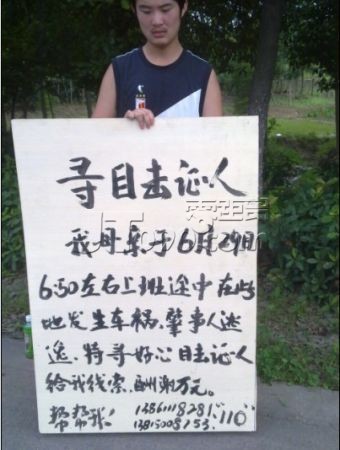 寻目击证人
我母亲于6月29日
6:50左右上班途中在此
地发生车祸、肇事人逃
逸、特寻好心目击证人
给我线索、酬谢万元。
帮帮我! 13861118281 "110"
13815008153